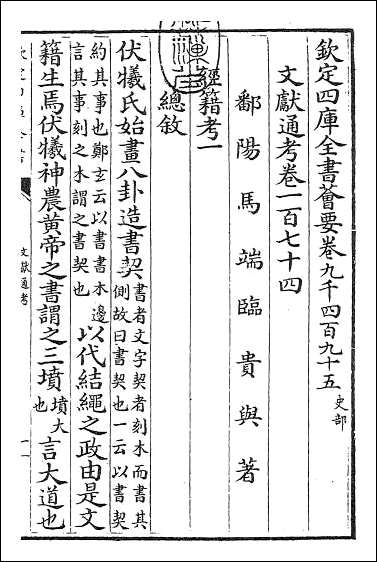 欽定四庫全書薈要卷九千四百九十五 史部
文獻通考卷一百七十四
鄱陽馬端臨貴與著
經籍考一
總敘
伏犧氏始畫八卦造書契書者文字契者刻木而書其側故曰書契也一云以書契
約其事也鄭𤣥云以書書木邊言其事刻之木謂之書契也以代結繩之政由是文
籍生焉伏犧神農黄帝之書謂之三墳墳大也言大道也
文獻通考